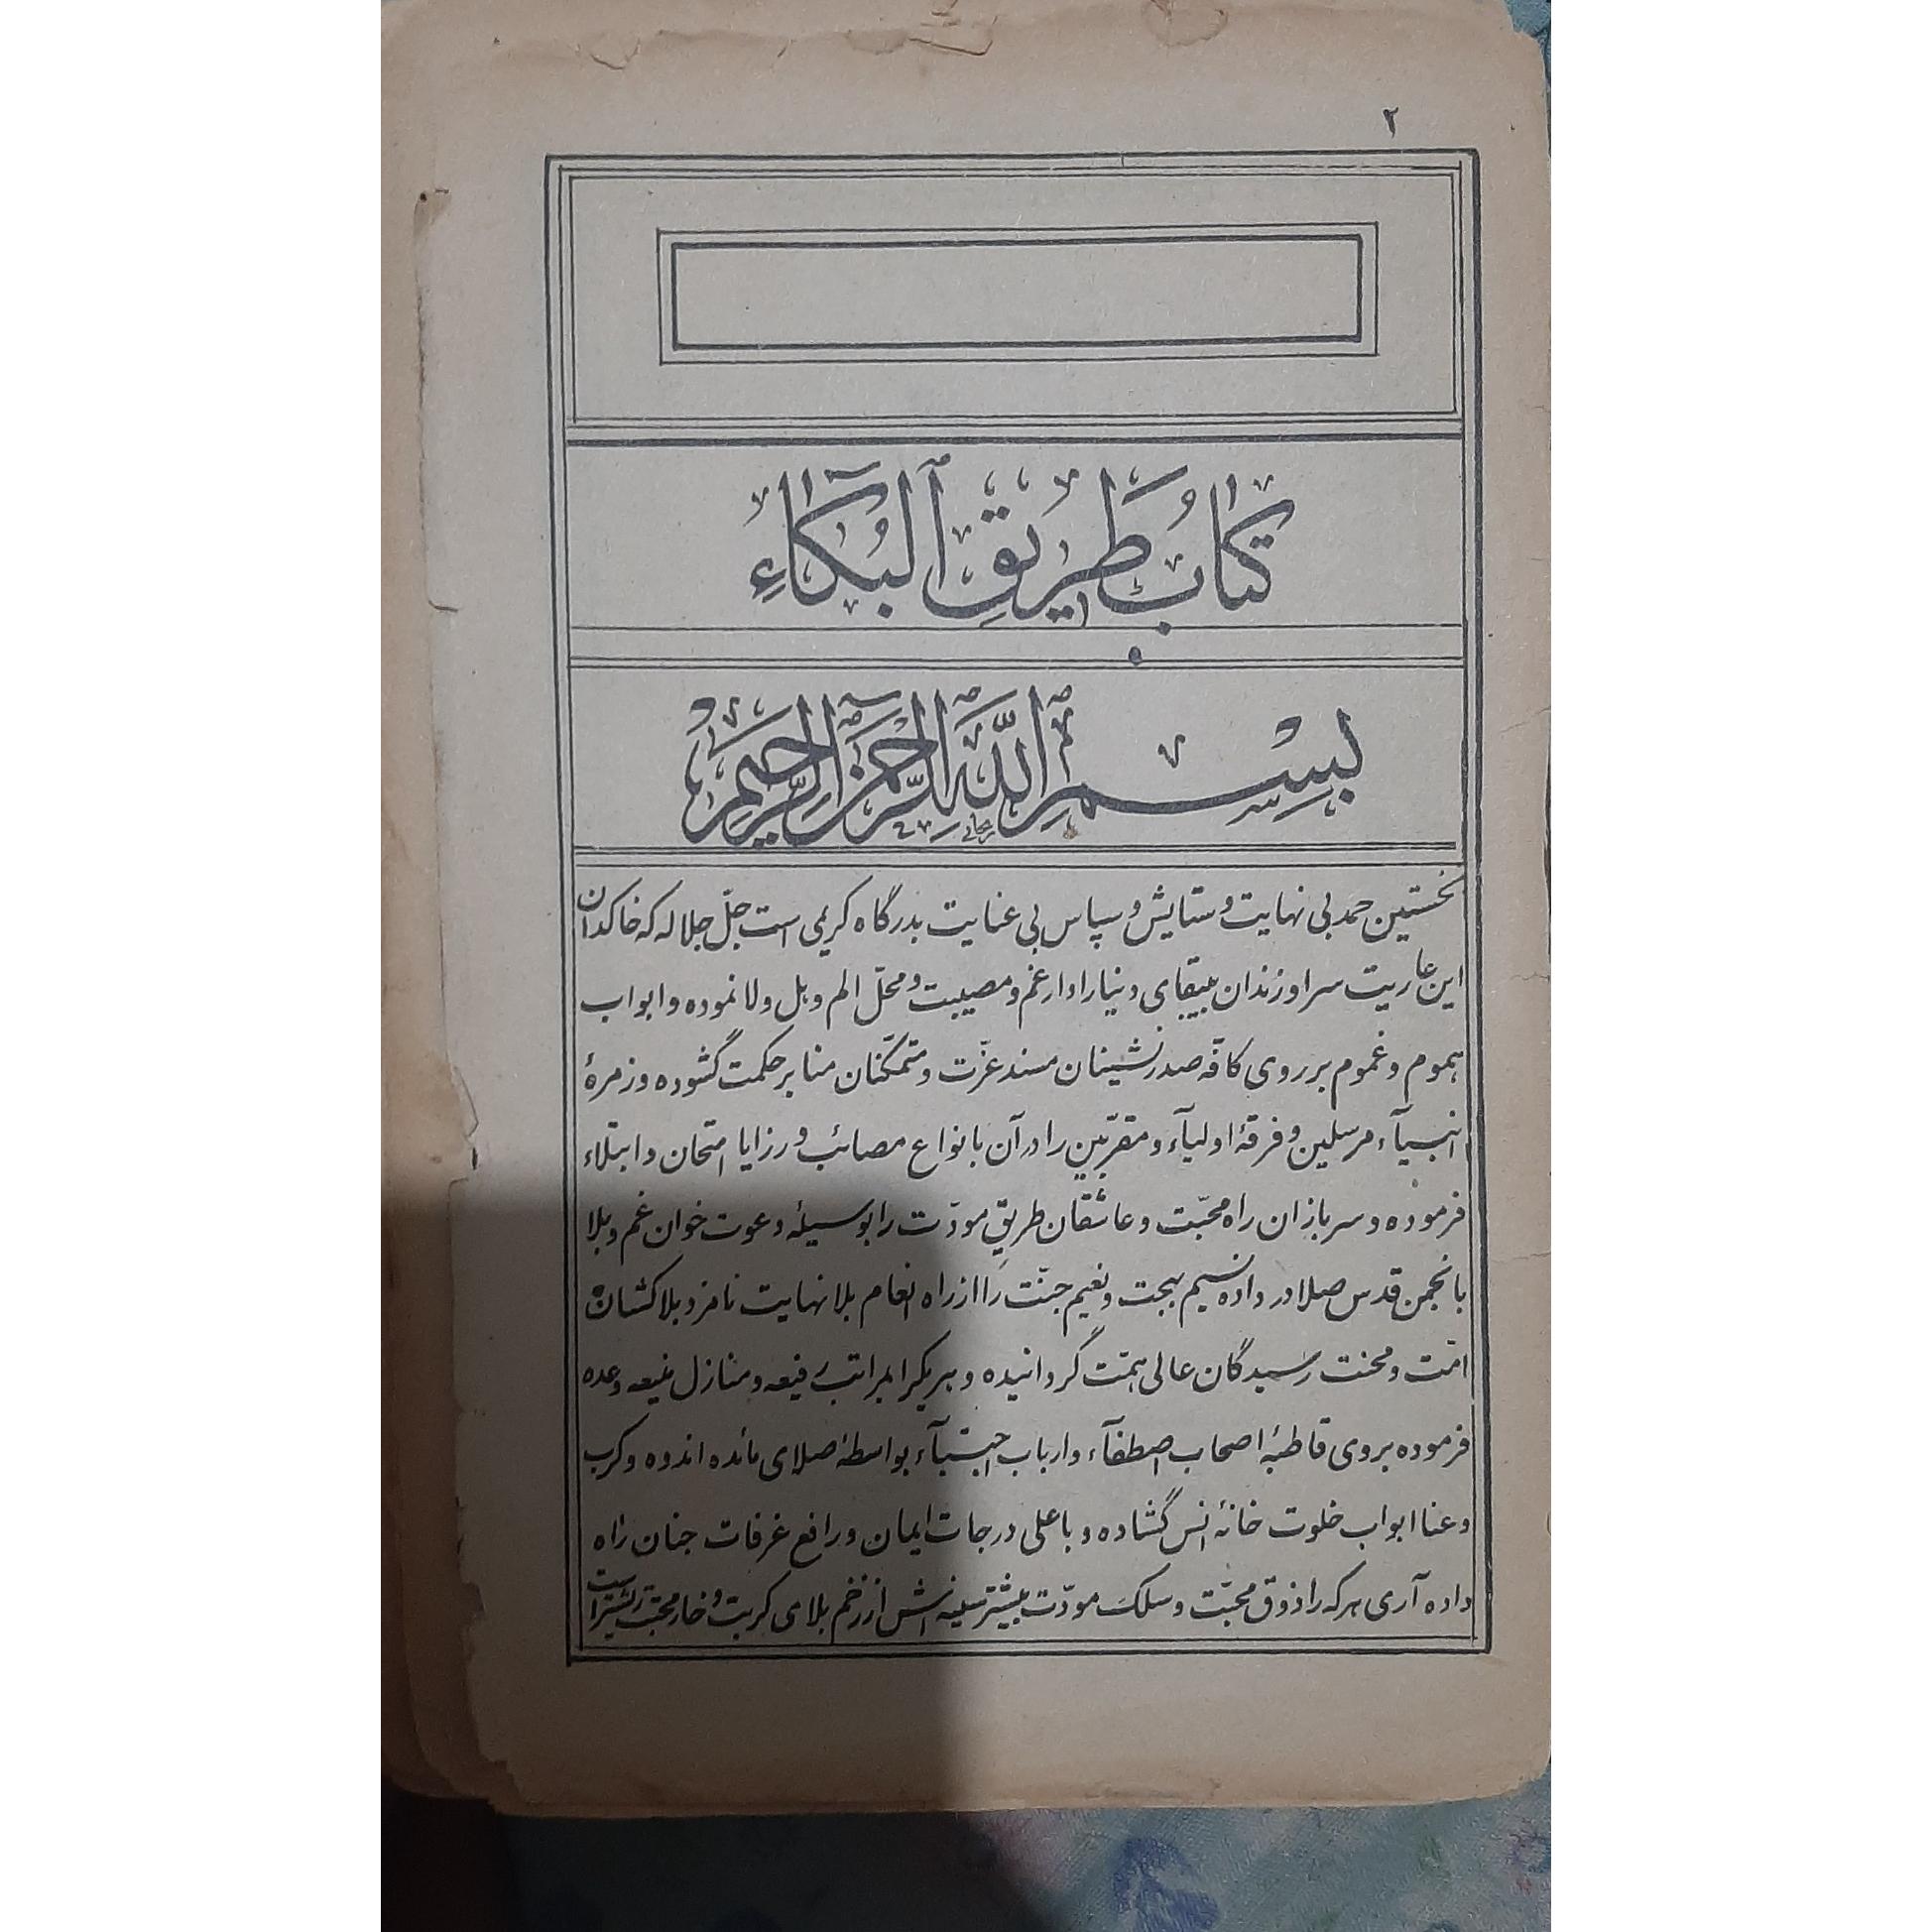 ٢
كِتابُ طَريقِ ٱلبُكاءِ
بِسْمِ ٱللّٰهِ ٱلرَّحْمٰنِ ٱلرَّحيمِ
نخستین حمد بی نهایت و ستایش و سپاس بی عنایت بدرگاه کریمی است جلّ جلاله که خاکدان
این عاریت سرا و زندان بیبقای دنیا را دار غم و مصیبت و محلّ الم و بل ولا نموده و ابواب
هموم و غموم بر روی کافّه صدر نشینان مسند عزّت و متمکّنان منابر حکمت گشوده و زمرهٔ
انبیآء مرسلین و فرقهٔ اولیآء و مقربّین را در آن بانواع مصائب و رزایا امتحان و ابتلاء
فرموده و سربازان راه محبّت و عاشقان طریقِ مودّت را بوسیلهٔ دعوت خوان غم و بلا
بانجمن قدس صلا در داده نسیم بهجت و نعیم جنّت را از راه انعام بلا نهایت نامزد بلاکشان
امّت و محنت رسیدگان عالی همّت گردانیده و هر یکرا بمراتب رفیعه و منازل منیعه وعده
فرموده بروی قاطبهٔ اصحاب اصطفآء و ارباب اجتبآء بواسطهٔ صلای مائده اندوه و کرب
و عنا ابواب خلوت خانهٔ انس گشاده و باعلی درجات ایمان و رافع غرفات جنان راه
داده آری هر که را ذوق محبّت و سلک مودّت بیشتر سینه اش از زخم بلای کربت و خار محنت ریشتر است